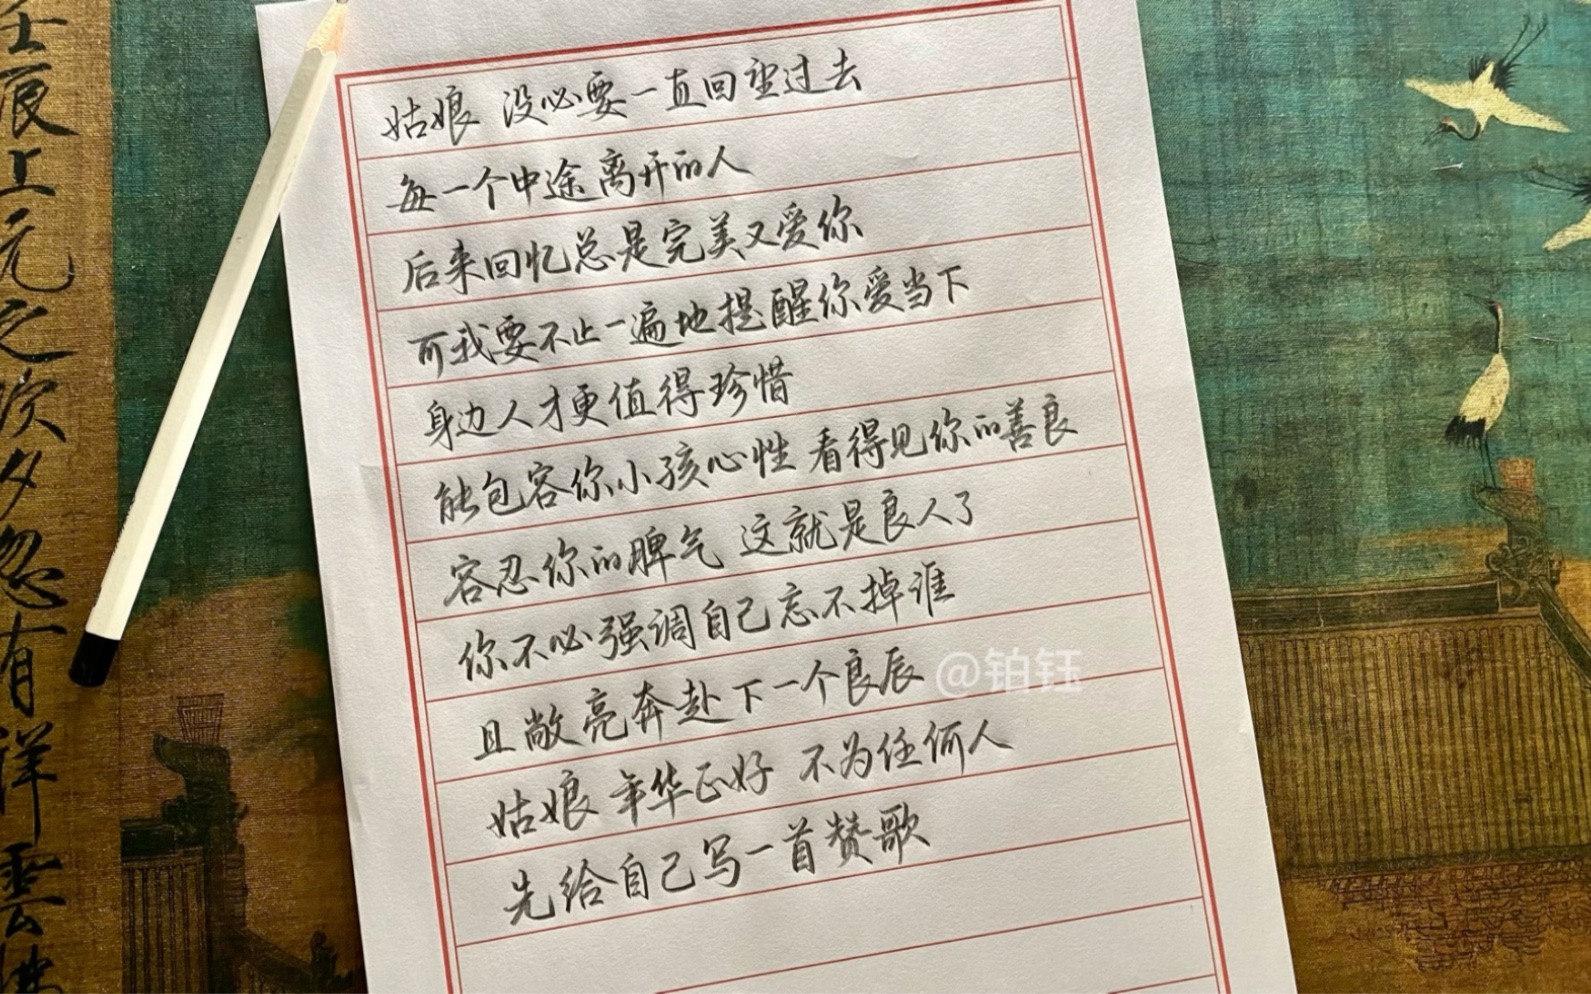 姑娘 没必要一直回望过去
每一个中途离开的人
后来回忆总是完美又爱你
可我要不止一遍地提醒你爱当下
身边人才更值得珍惜
能包容你小孩心性 看得见你的善良
容忍你的脾气 这就是良人了
你不必强调自己忘不掉谁
且敞亮奔赴下一个良辰
@铂钰
姑娘 年华正好 不为任何人
先给自己写一首赞歌
壬辰上元之次夕忽有祥雲拂